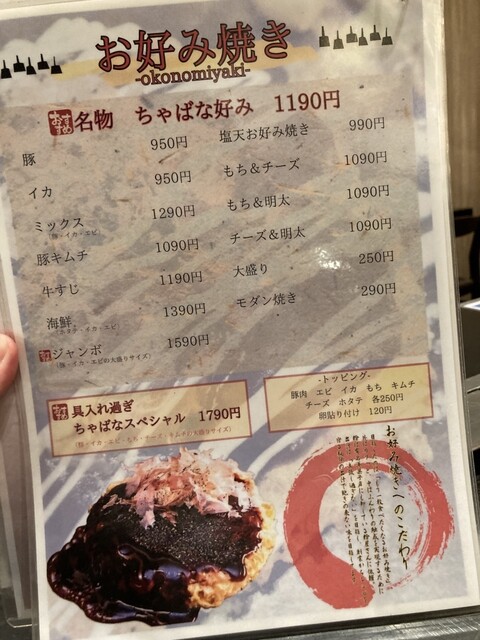 お好み焼き
-okonomiyaki-
おすすめ 名物 ちゃばな好み 1190円
豚 950円
イカ 950円
ミックス 1290円
(豚・イカ・エビ)
豚キムチ 1090円
牛すじ 1190円
海鮮 1390円
(ホタテ・イカ・エビ)
ジャンボ 1590円
(豚・イカ・エビの大盛りサイズ)
塩天お好み焼き 990円
もち&チーズ 1090円
もち&明太 1090円
チーズ&明太 1090円
大盛り 250円
モダン焼き 290円
具入れ過ぎ
ちゃばなスペシャル 1790円
(豚・イカ・エビ・もち・チーズ・キムチの大盛りサイズ)
-トッピング-
豚肉 エビ イカ もち キムチ
チーズ ホタテ 各250円
卵貼り付け 120円
お好み焼きへのこだわり